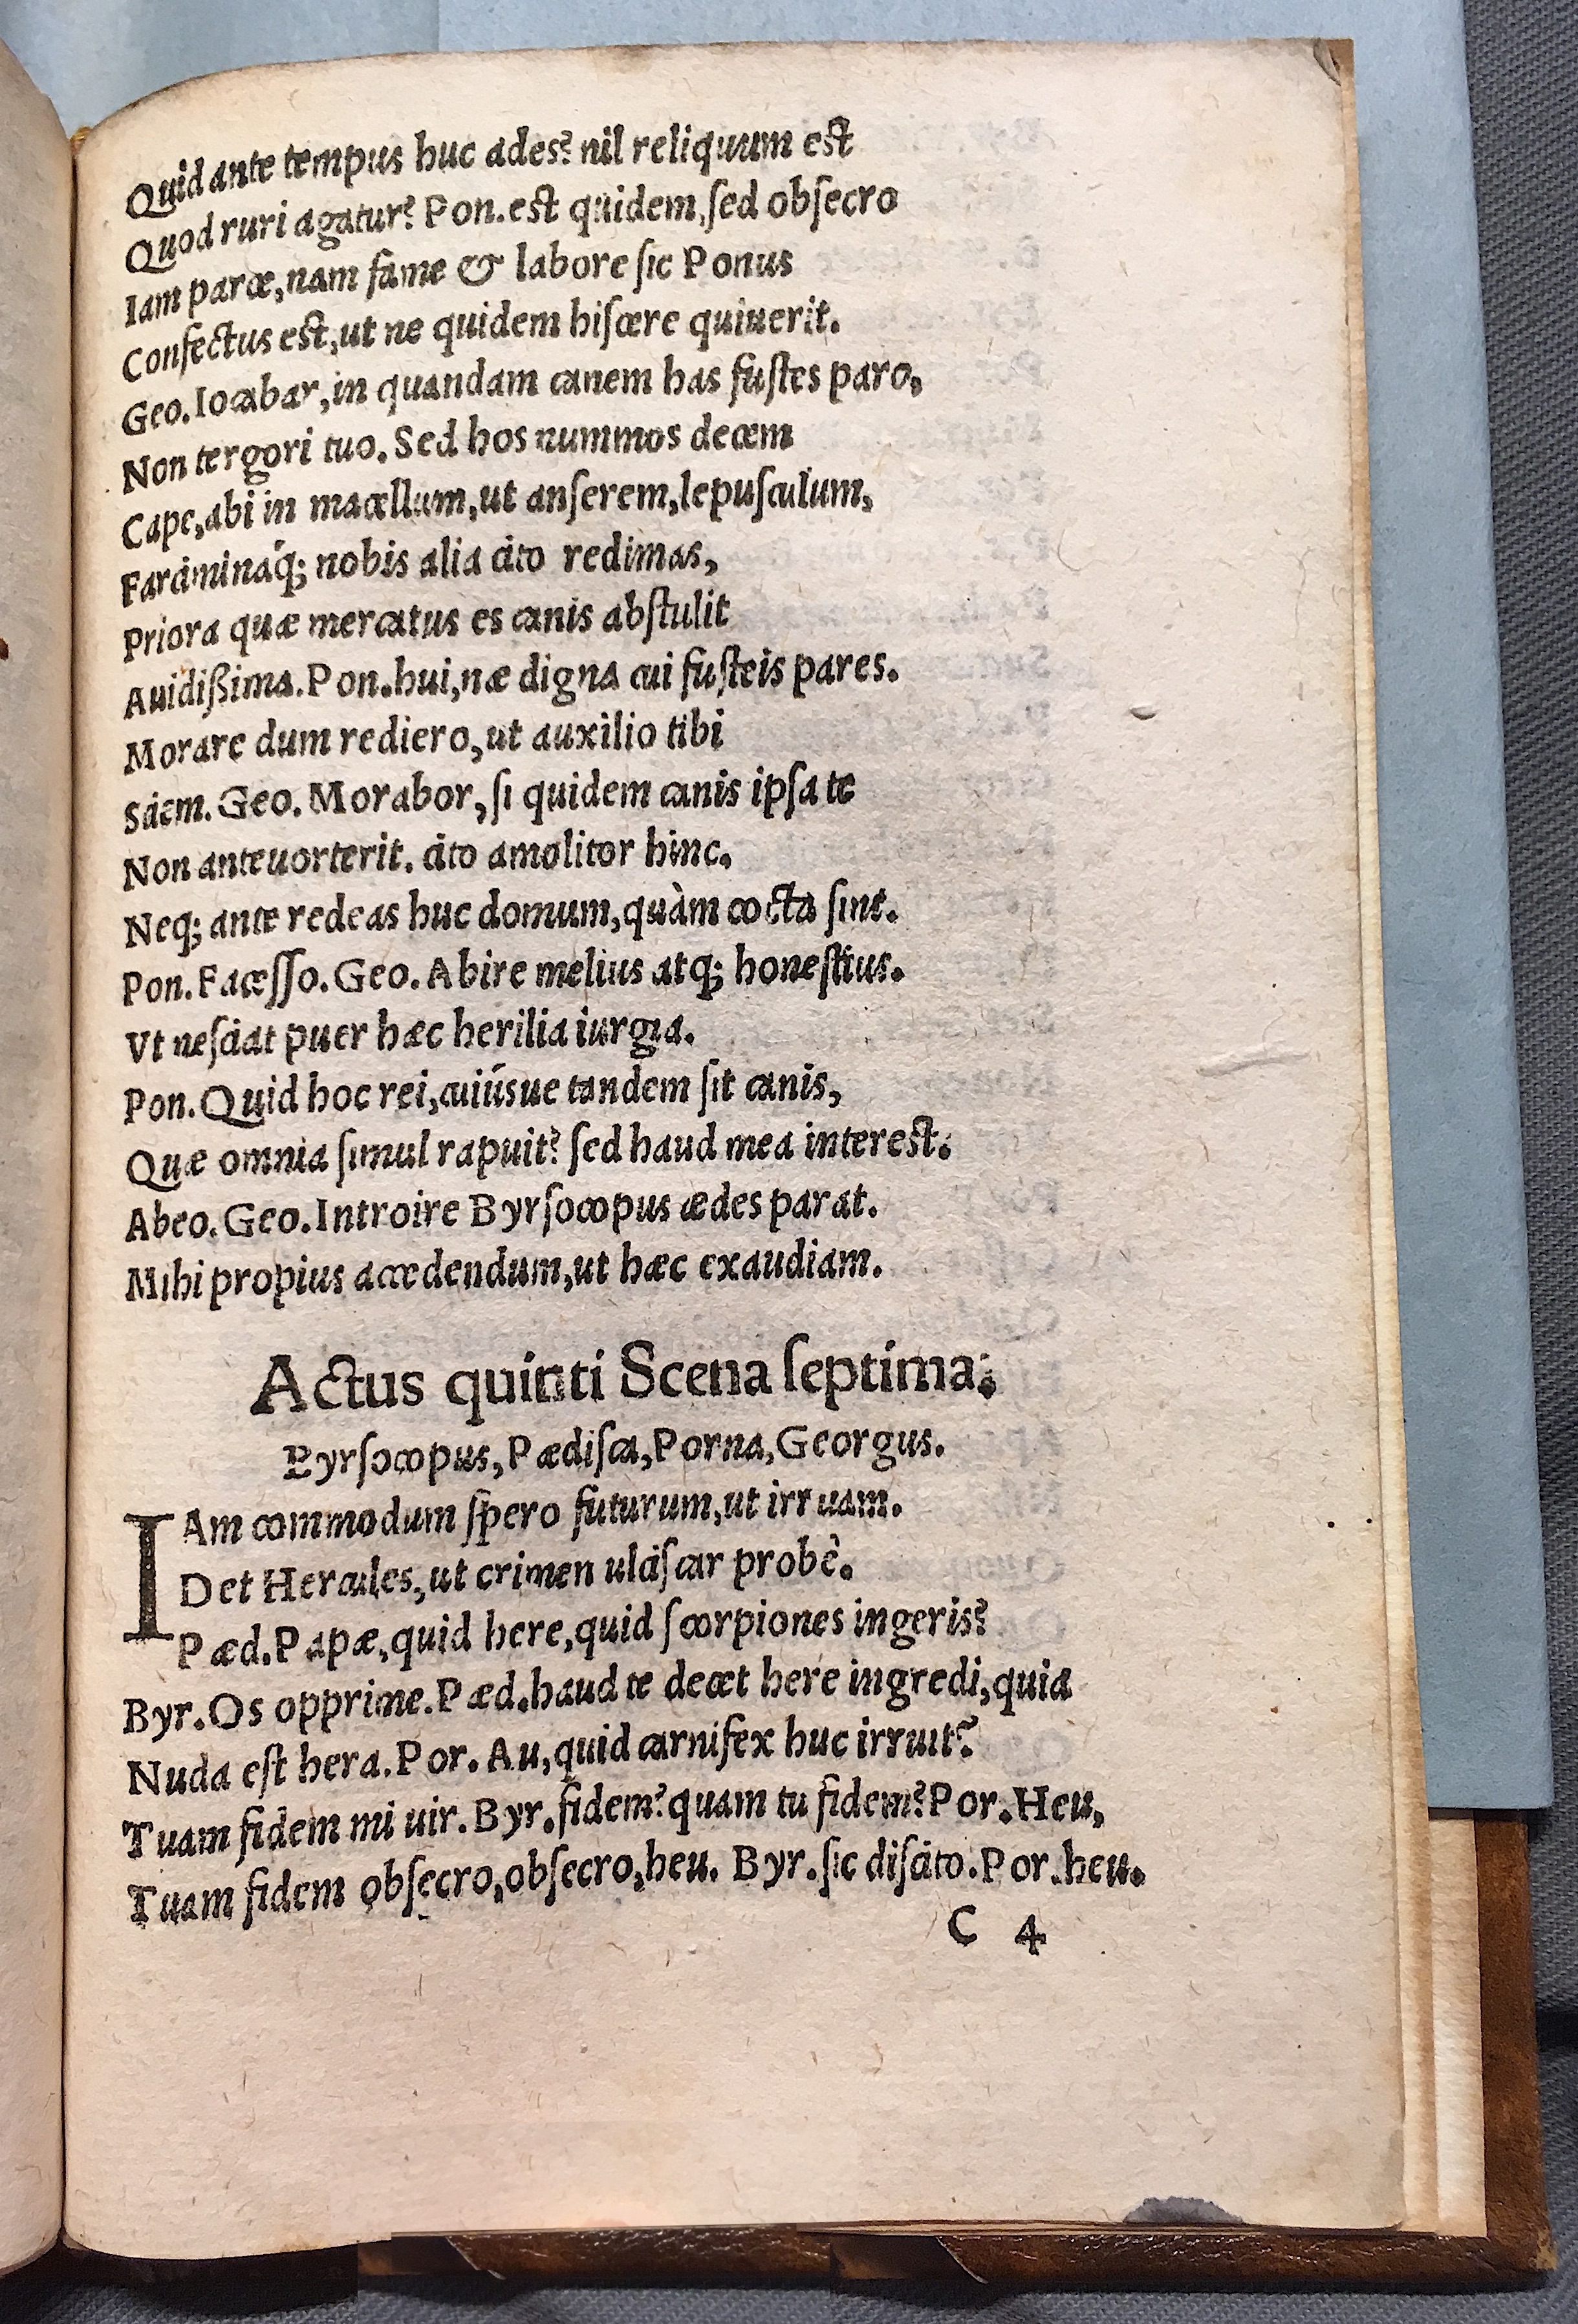 Quid ante tempus huc ades? nil reliquum est
Quod ruri agatur? Pon. est quidem, ſed obſecro
Iam parce, nam fame & labore ſic Ponus
Confectus est, ut ne quidem hiſcere quiuerit.
Geo. Iocabar, in quandam canem has fuſtes paro,
Non tergori tuo. Sed hos nummos decem
Cape, abi in macellum, ut anſerem, lepuſculum,
Farciminaq́; nobis alia cito redimas,
Priora quæ mercatus es canis abſtulit
Auidißima. Pon. hui, næ digna cui fuſteis pares.
Morare dum rediero, ut auxilio tibi
Sáem. Geo. Morabor, ſi quidem canis ipſa te
Non anteuorterit. cito amolitor hinc.
Neq; ante redeas huc domum, quàm cocta ſint.
Pon. Faceſſo. Geo. Abire melius atq; honeſtius.
Vt neſciat puer hæc herilia iurgia.
Pon. Quid hoc rei, cuiúsue tandem ſit canis,
Quæ omnia ſimul rapuit? ſed haud mea interest.
Abeo. Geo. Introire Byrſocopus ædes parat.
Mihi propius accedendum, ut hæc exaudiam.
Actus quinti Scena ſeptima.
Byrſocopus, Pædiſca, Porna, Georgus.
IAm commodum ſpero futurum, ut irruam.
Det Hercules, ut crimen ulciſcar probè.
Pæd. Papæ, quid here, quid ſcorpiones ingeris?
Byr. Os opprime. Pæd. haud te decet here ingredi, quia
Nuda eſt hera. Por. Au, quid carnifex huc irruit?
Tuam fidem mi uir. Byr. fidem? quam tu fidem? Por. Heu,
Tuam fidem obſecro, obſecro, heu. Byr. ſic diſcito. Por. heu.
C 4